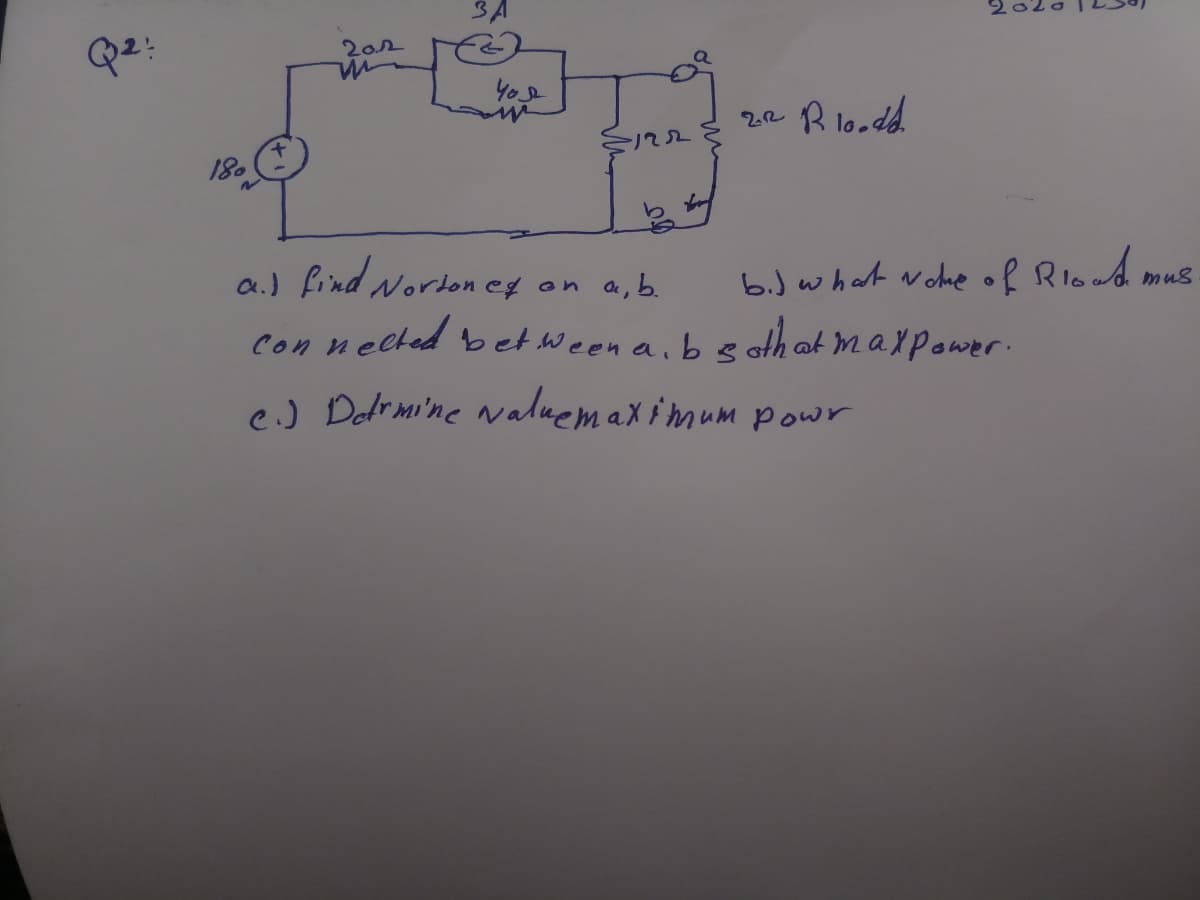 3A
Q2:
20Ω
40Ω
a
2Ω Rload
12Ω
180
+
-
v
b
a.) find Norton eq on a,b. b.) what value of Rload mus
connected between a,b so that max power.
c.) Detrmine value maximum powr